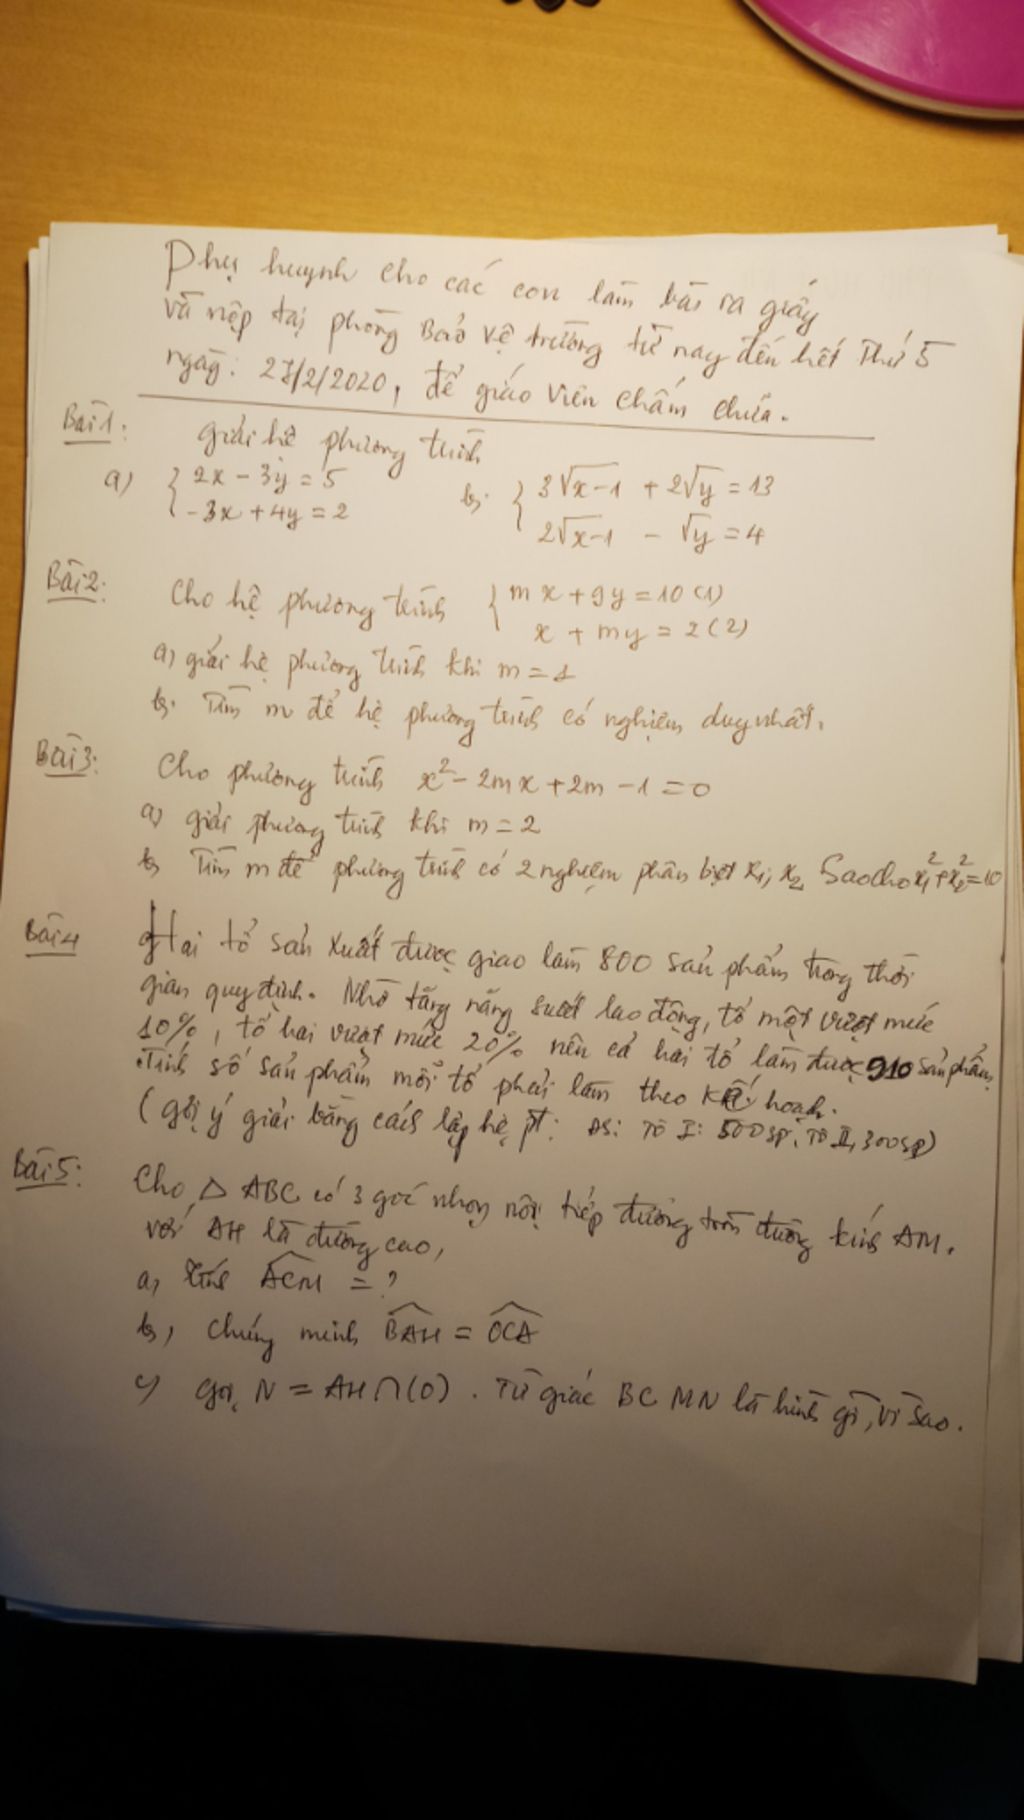 Phụ huynh cho các con làm bài ra giấy
và nộp tại phòng Bảo vệ trường từ nay đến hết Thứ 5
ngày: 27/2/2020, để giáo viên chấm chữa.
Bài 1: Giải hệ phương trình
a) { 2x - 3y = 5
-3x + 4y = 2
b. { 3√x-1 + 2√y = 13
2√x-1 - √y = 4
Bài 2: Cho hệ phương trình { mx + 9y = 10 (1)
x + my = 2 (2)
a) giải hệ phương trình khi m = 1
b. Tìm m để hệ phương trình có nghiệm duy nhất.
Bài 3: Cho phương trình x² - 2mx + 2m - 1 = 0
a) giải phương trình khi m = 2
b) Tìm m để phương trình có 2 nghiệm phân biệt x₁; x₂ Sao cho x₁² + x₂² = 10
Bài 4 Hai tổ sản xuất được giao làm 800 sản phẩm trong thời
gian quy định. Nhờ tăng năng suất lao động, tổ một vượt mức
10%, tổ hai vượt mức 20% nên cả hai tổ làm được 910 sản phẩm
Tính số sản phẩm mỗi tổ phải làm theo kế hoạch.
(gợi ý giải bằng cách lập hệ pt: ĐS: Tổ I: 500sp; Tổ II, 300sp)
Bài 5: Cho △ ABC có 3 góc nhọn nội tiếp đường tròn đường kính AM.
với AH là đường cao,
a, Tính ACM = ?
b, Chứng minh BAH = OCA
c) Gọi N = AH ∩ (O). Tứ giác BCMN là hình gì, vì sao.